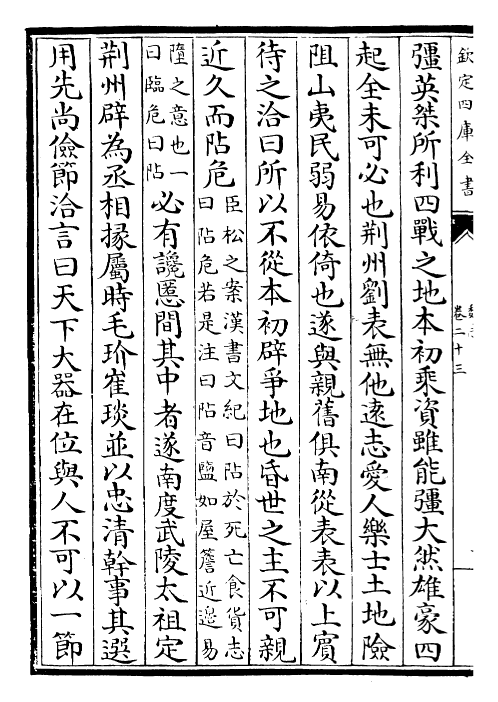 欽定四庫全書
卷二十三
彊英桀所利四戰之地本初乘資雖能彊大然雄豪四
起全未可必也荆州劉表無他逺志愛人樂士土地險
阻山夷民弱易依倚也遂與親舊俱南從表表以上賔
待之洽曰所以不從本初辟爭地也昏世之主不可親
近久而阽危臣松之案漢書文紀曰阽於死亡食貨志
曰阽危若是注曰阽音鹽如屋簷近邉易
墮之意也一
曰臨危曰阽必有讒慝間其中者遂南度武陵太祖定
荆州辟為丞相掾屬時毛玠崔琰並以忠清幹事其選
用先尚儉節洽言曰天下大器在位與人不可以一節